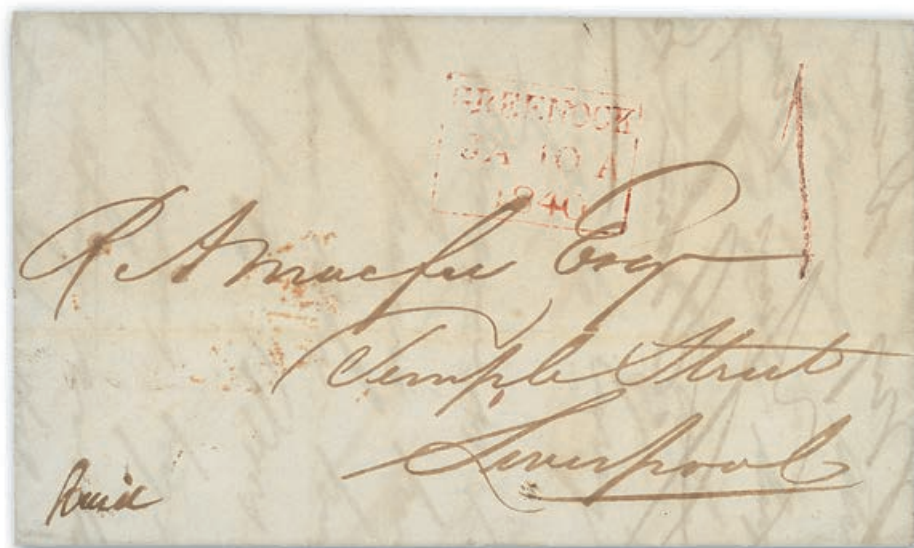 GREENOCK
JA 10 A
1840
1
R. A Macfie Esqr
Temple Street
Liverpool
Paid